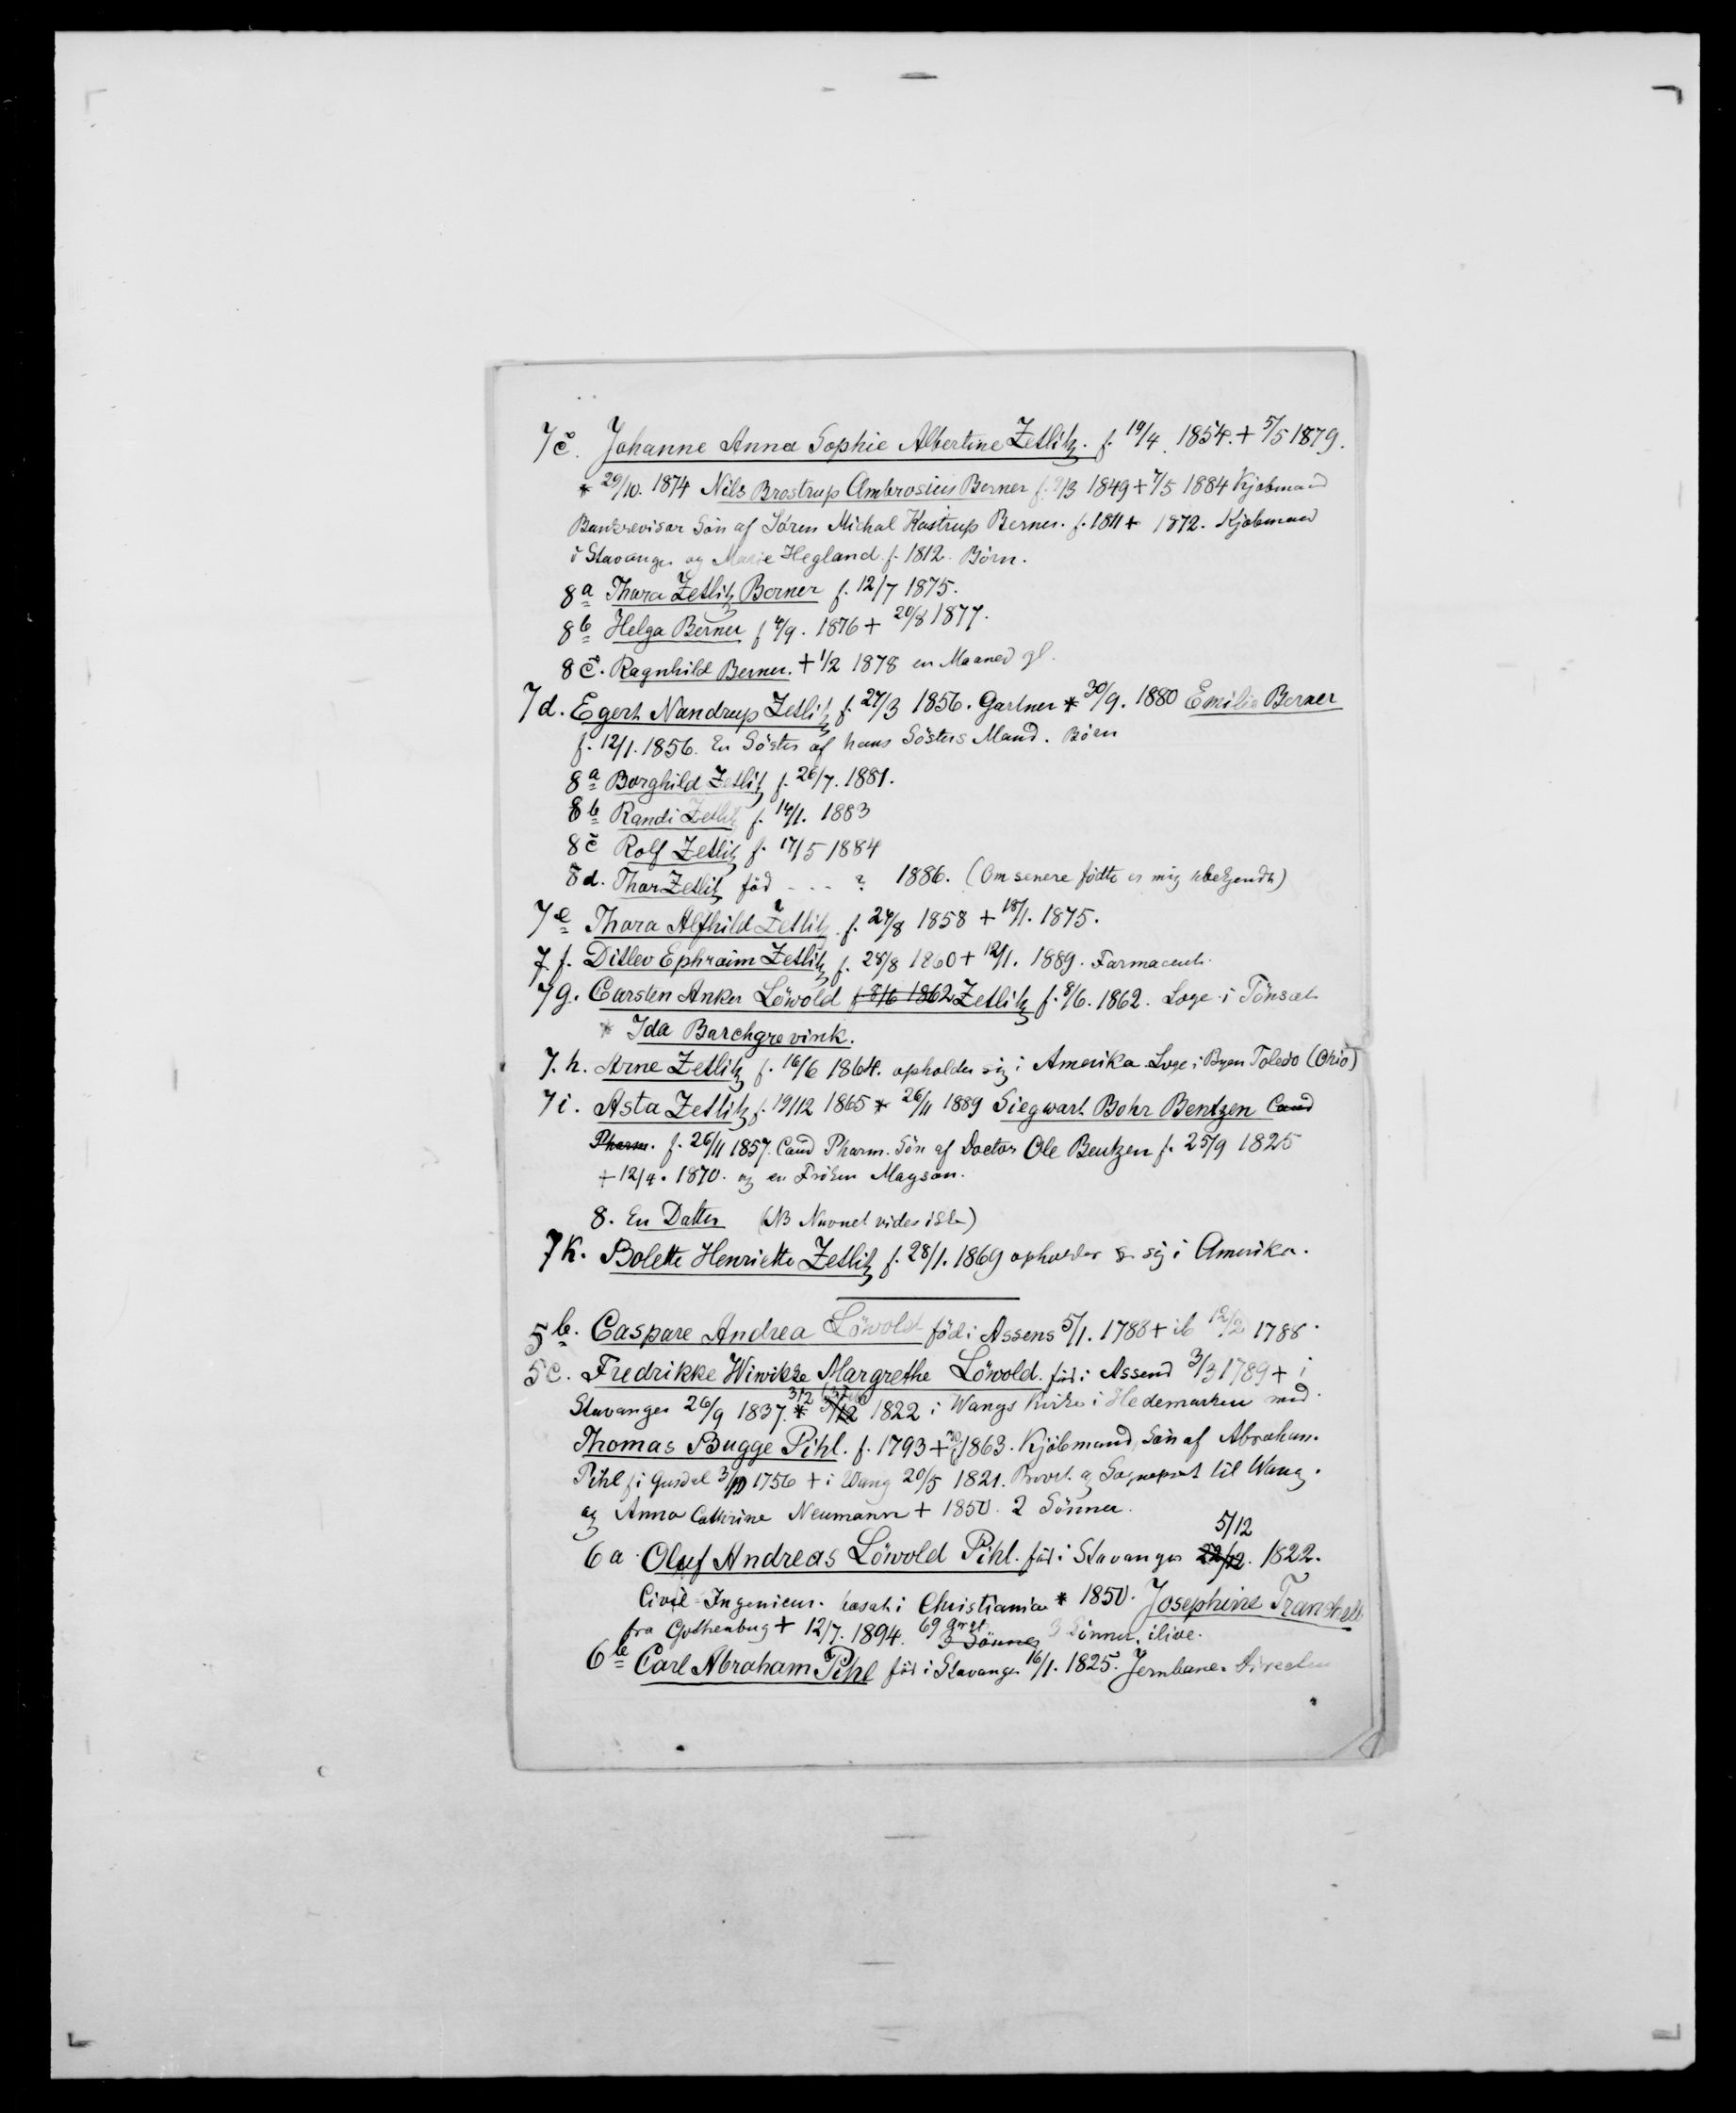 7c. Johanne Anna Sophie Albertine Zetlitz. f. 19/4. 1854. + 5/5 1879.
* 29/10. 1874 Nils Brostrup Ambrosius Berner f. 9/3 1849 + 7/5 1884 Kjøbmand
Bankrevisor Søn af Søren Michal Kastrup Berner. f. 1811 + 1872. Kjøbmand
i Stavanger og Marie Hegland f. 1812. Børn.
8a Thora Zetlitz Berner f. 12/7 1875.
8b Helga Berner f 4/9. 1876 + 20/8 1877.
8c. Ragnhild Berner. + 1/2 1878 en Maaned gl.
7d. Egert Nandrup Zetlitz f. 27/3 1856. Gartner * 30/9. 1880 Emilie Berner
f. 12/1. 1856. En Søster af hans Søsters Mand. Børn
8a Borghild Zetlitz f. 26/7. 1881.
8b Randi Zetlitz f. 14/1. 1883
8c Rolf Zetlitz f. 17/5 1884
8d. Thor Zetlitz fød - - - ? 1886. (Om senere fødte er mig ubekjendt)
7e Thora Alfhild Zetlitz f. 24/8 1858 + 18/1. 1875.
7.f. Ditlev Ephraim Zetlitz f. 28/8 1860 + 12/1. 1889. Farmaceut.
7g. Carsten Anker Löwold f 8/6 1862 Zetlitz f. 8/6. 1862. Læge i Tönset
* Ida Barchgrevink.
7.h. Arne Zetlitz f. 16/6 1864. opholder sig i Amerika. Læge i Byen Toledo (Ohio)
7i. Asta Zetlitz f. 19/12 1865 * 26/11 1889 Siegwart Bohr Bentzen Cand
Pharm. f. 26/11 1857. Cand Pharm. Søn af Doctor Ole Bentzen f. 25/9 1825
+ 12/4. 1870. og en Frøken Magson.
8. En Datter (NB Navnet vides ikke)
7k. Bolette Henriette Zetlitz f. 28/1. 1869 opholder sig i Amerika.
5b. Caspare Andrea Löwold fød i Assens 5/1. 1788 + ib 12/2 1788.
5c. Fredrikke Wiwikke Margrethe Löwold. fød i Assens 3/3 1789 + i
Stavanger 26/9 1837. * 3/2 1822 i Wangs Kirke i Hedemarken med
Thomas Bugge Pihl. f. 1793 + 1863. Kjøbmand, Søn af Abraham
Pihl f i Gusdal 3/10 1756 + i Wang 20/5 1821. Provst og Sognepræst til Wang.
og Anna Cathrine Neumann + 1850. 2 Sønner.
5/12
6a. Oluf Andreas Löwold Pihl. fød i Stavanger 22/12. 1822.
Civil-Ingenieur. bosat i Christiania * 1850. Josephine Tranchell
fra Gothenburg + 12/7. 1894. 69 Aar. 3 Sønner 3 Sønner, ilive.
6b Carl Abraham Pihl fød i Stavanger 16/1. 1825. Jernbane-Director